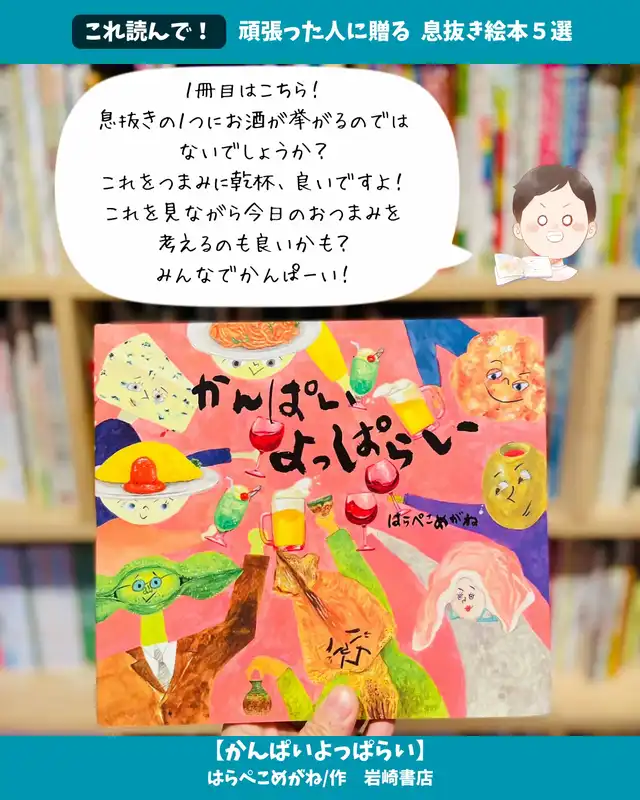 これ読んで！ 頑張った人に贈る 息抜き絵本５選
1冊目はこちら！
息抜きの1つにお酒が挙がるのでは
ないでしょうか？
これをつまみに乾杯、良いですよ！
これを見ながら今日のおつまみを
考えるのも良いかも？
みんなでかんぱーい！
かんぱい
よっぱらい
はらぺこめがね
【かんぱいよっぱらい】
はらぺこめがね/作　岩崎書店